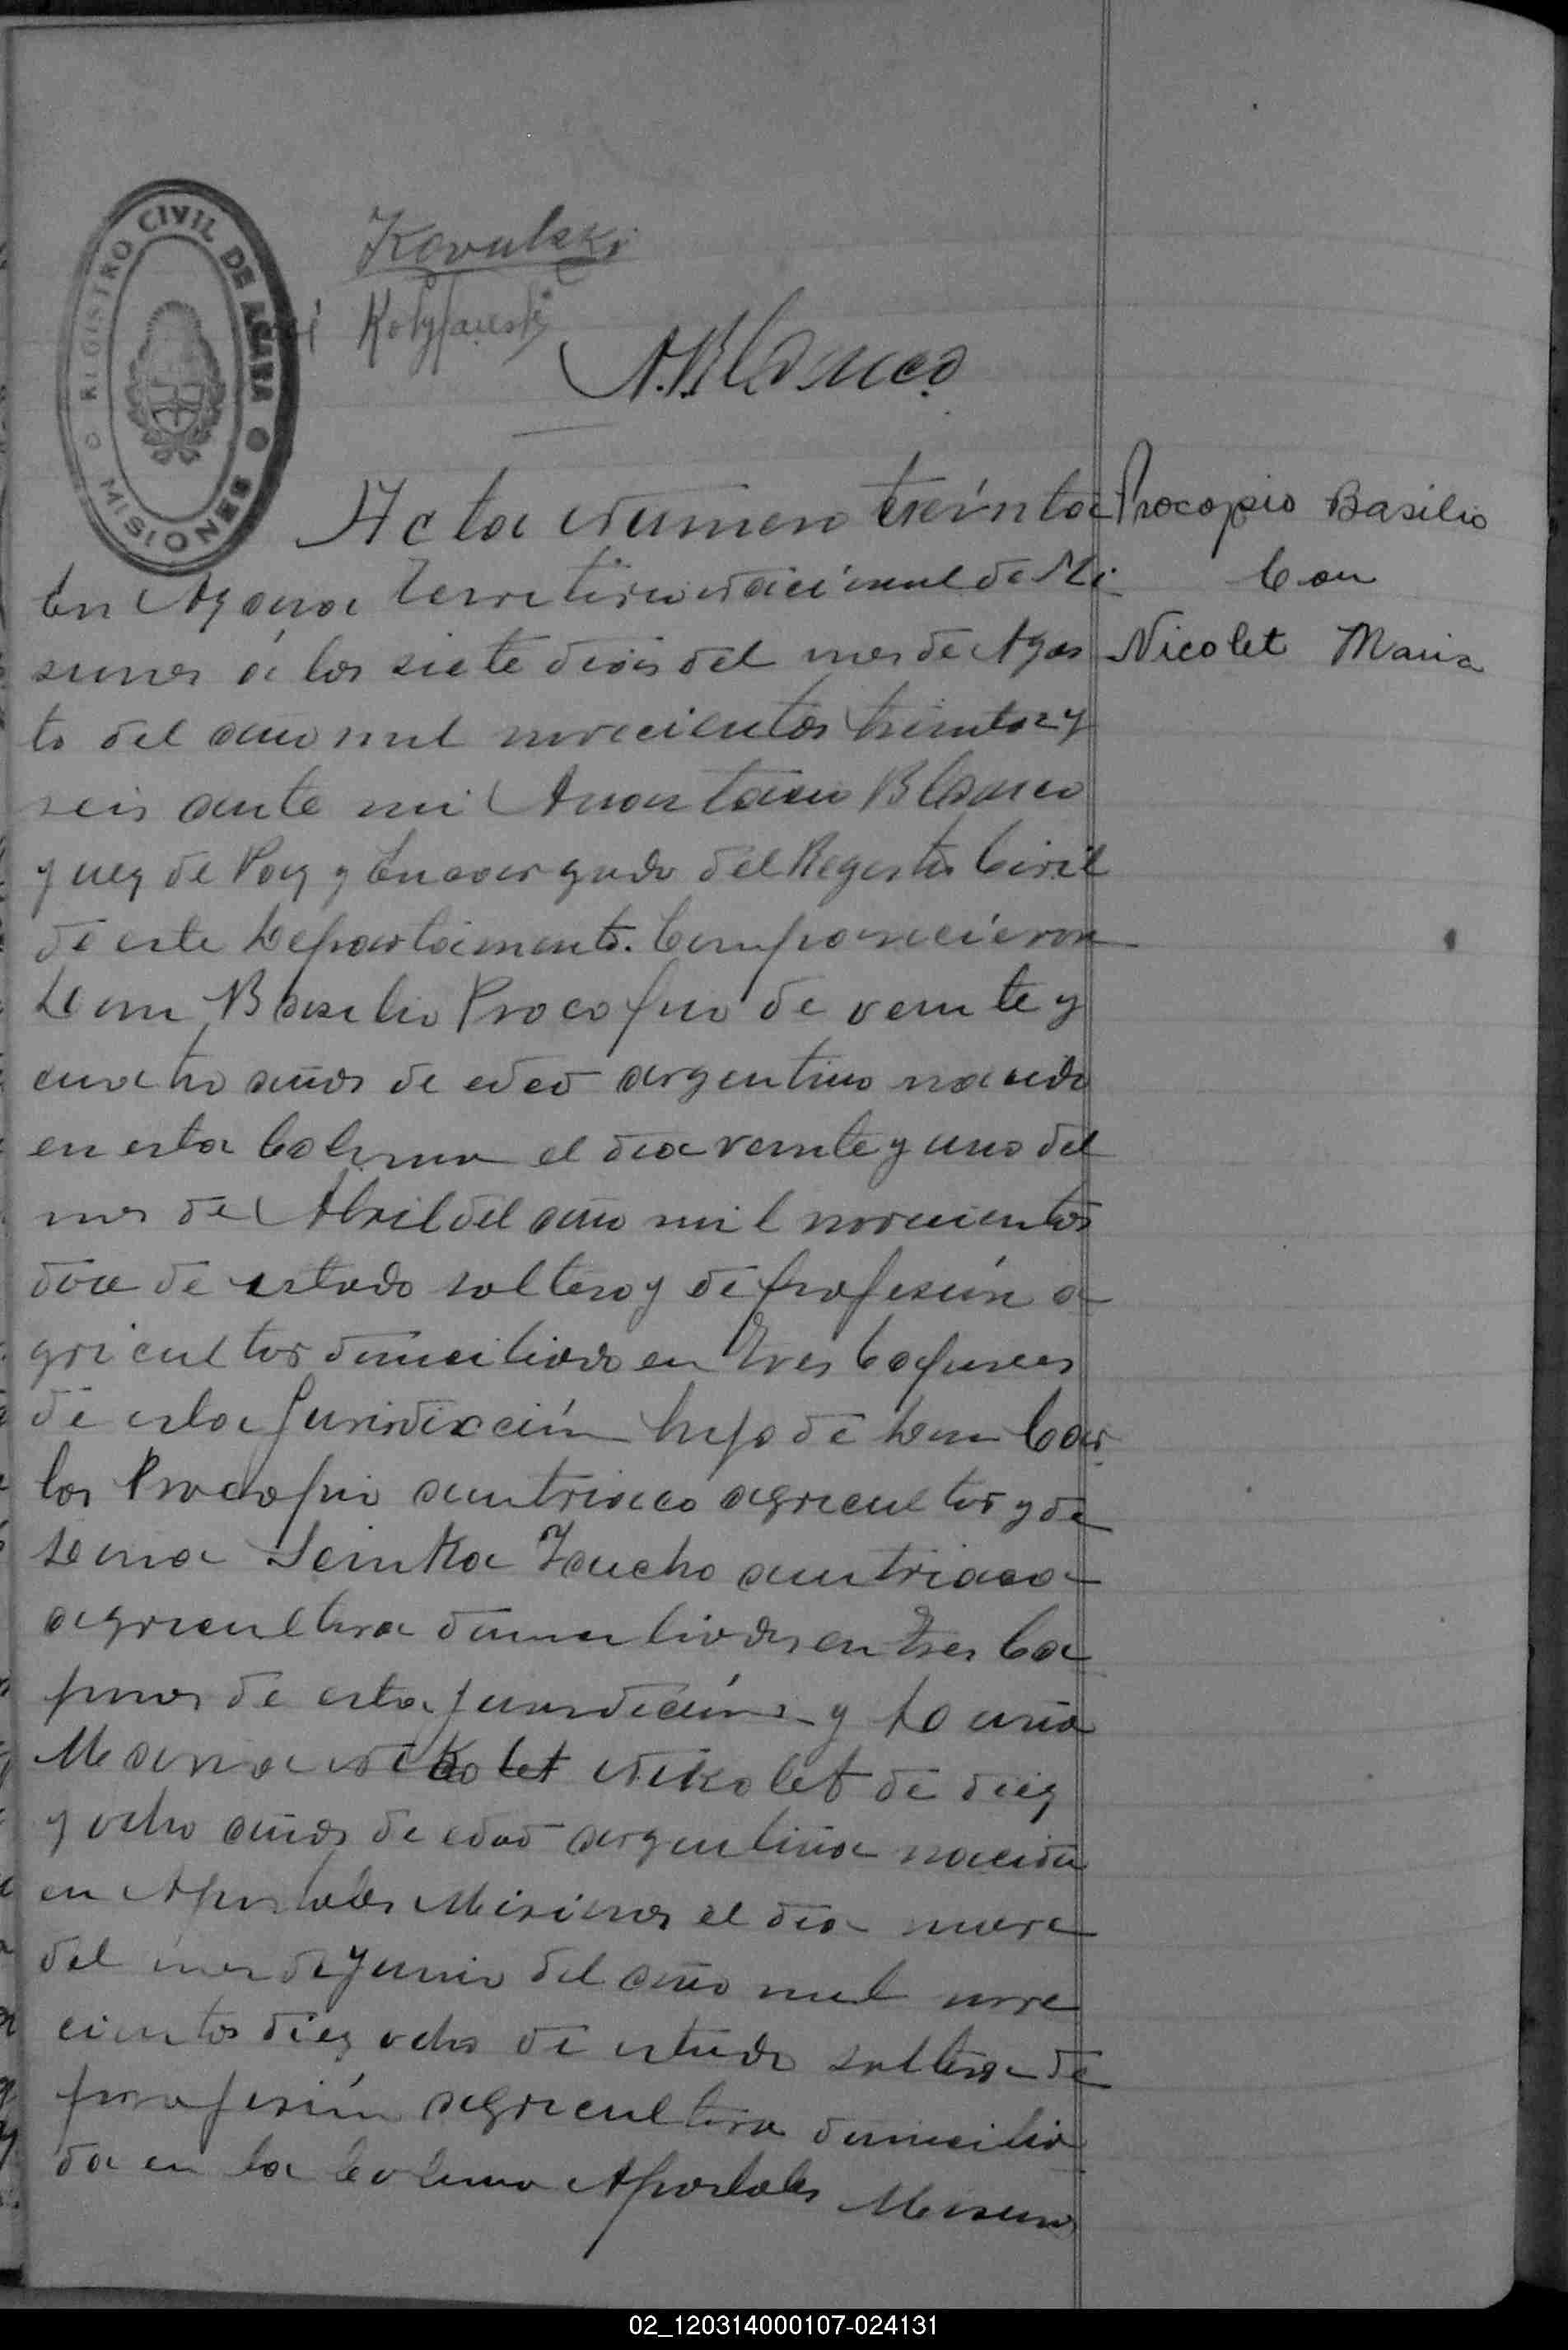 REGISTRO CIVIL DE AZARA
MISIONES
Kovalski
A. Blanco
Acta Numero treinta
En Azara Territorio Nacional de Mi
siones á los siete dias del mes de Agos
to del año mil novecientos treinta y
seis ante mi Blanco
Juez de Paz y Encargado del Registro Civil
de este Departamento. Comparecieron
Don Basilio Procopio de veinte y
cuatro años de edad argentino nacido
en esta Colonia el dia veinte y uno del
mes de Abril del año mil novecientos
doce de estado soltero y de profesión a
gricultor domiciliado en Tres Capones
de esta Jurisdixción hijo de Don Car
los Procopio austriaco agricultor y de
Dona austriaca
agricultora domiciliados en Tres Ca
pones de esta jurisdición y Doña
Maria Nikolet de diez
y ocho años de edad argentina nacida
en Apostoles Misiones el dia nueve
del mes de Junio del año mil nove
cientos diez ocho de estado soltera de
profesión agricultora domicilia
da en la Colonia Apostoles Misiones
Procopio Basilio
Con
Nicolet Maria
02_120314000107-024131